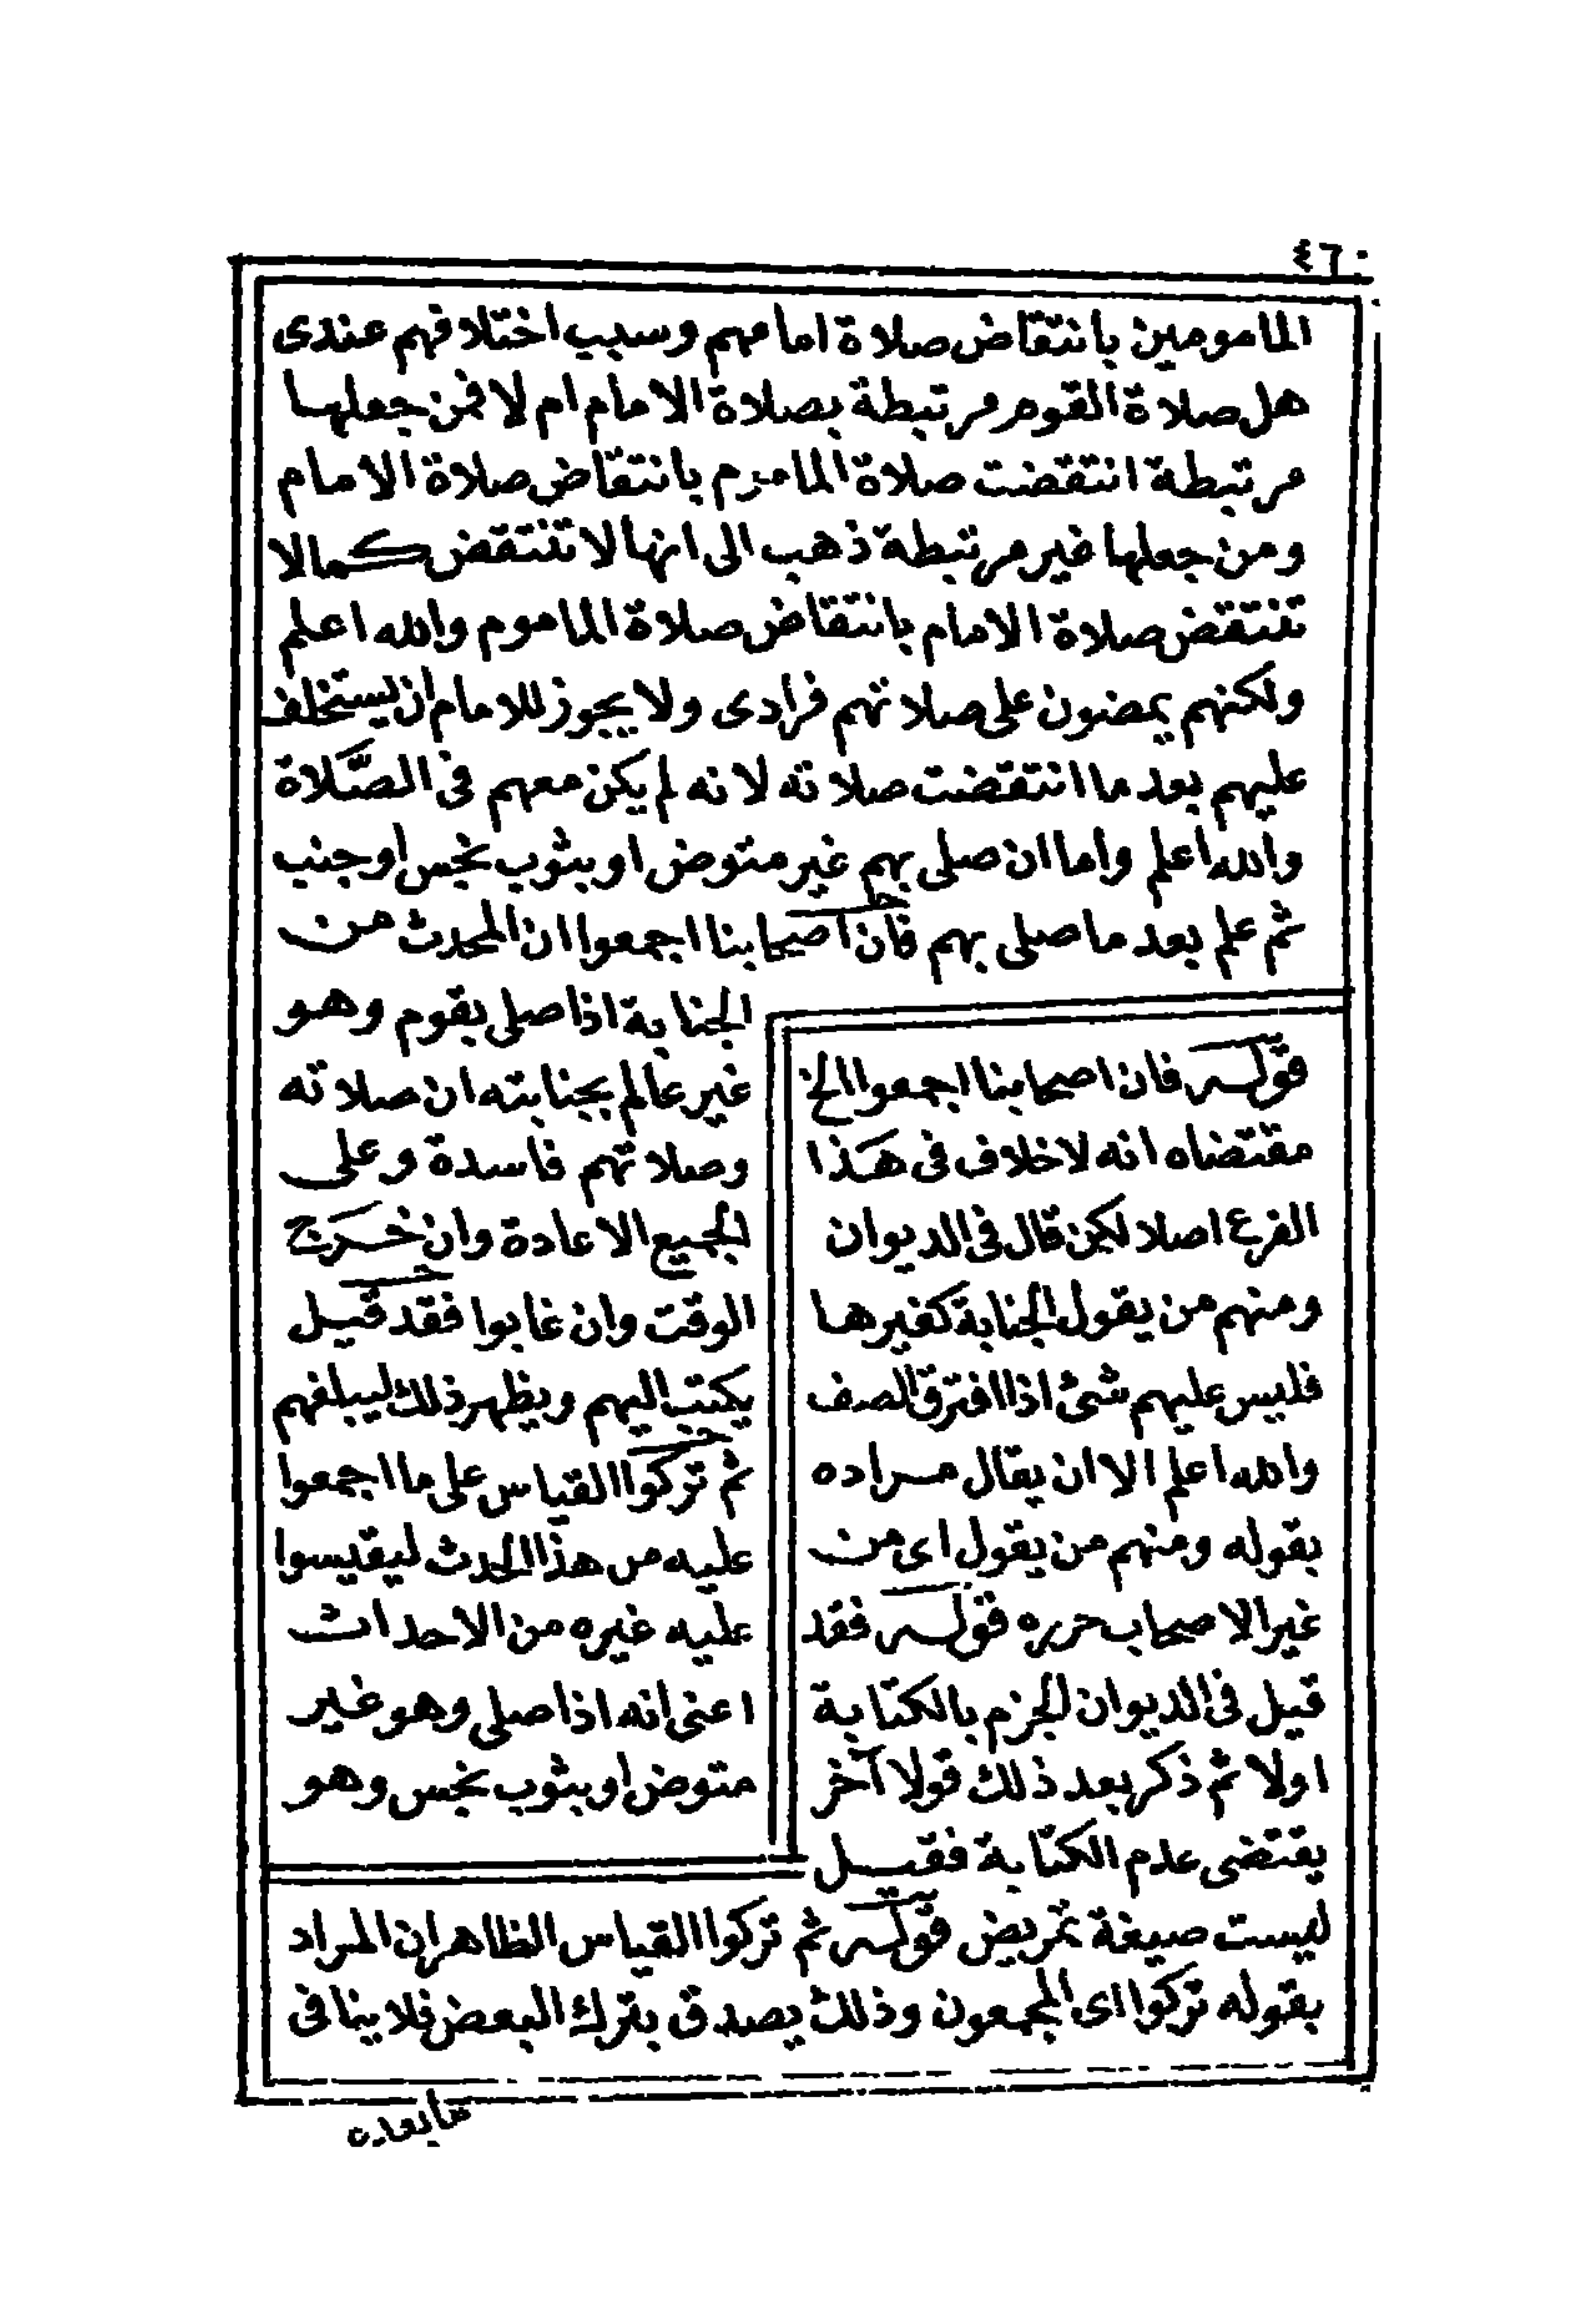 ٤٦٠
المامومين بانتقاض صلاة امامهم وسبب اختلافهم عندى
هل صلاة القوم مرتبطة بصلاة الامام ام لا فمن جعلها
مرتبطة انتقضت صلاة الماموم بانتقاض صلاة الامام
ومن جعلها غير مرتبطة ذهب الى انها لا تنتقض كما لا
تنتقض صلاة الامام بانتقاض صلاة الماموم والله اعلم
ولكنهم يمضون على صلاتهم فرادى ولا يجوز للامام ان يستخلف
عليهم بعد ما انتقضت صلاته لانه لم يكن معهم فى الصَّلاة
والله اعلم واما ان صلى بهم غير متوض او بثوب نجس او جنب
ثم علم بعد ما صلى بهم فان اصحابنا اجمعوا ان المحدث من
الجنابة اذا صلى بقوم وهو
غير عالم بجنابته ان صلاته
وصلاتهم فاسدة وعلى
الجميع الاعادة وان خَرج
الوقت وان غابوا فقد قيل
يكتب اليهم ويظهر ذلك ليبلغهم
ثم تركوا القياس على ما اجمعوا
عليه من هذا الحدث ليقيسوا
عليه غيره من الاحداث
اعنى انه اذا صلى وهو غير
متوض او بثوب نجس وهو
قوله فان اصحابنا اجمعوا الخ
مقتضاه انه لا خلاف فى هَذا
الفرع اصلا لكن قال فى الديوان
ومنهم من يقول الجنابة كغيرها
فليس عليهم شئ اذا افترق الصف
والله اعلم الا ان يقال مراده
بقوله ومنهم من يقول اى من
غير الاصحاب حرره قوله فقد
قيل فى الديوان الجزم بالكتابة
اولا ثم ذكر بعد ذلك قولا آخر
يقتضى عدم الكتابة فقيل
ليست صيغة تمريض قوله ثم تركوا القياس الظاهر ان المراد
بقوله تركوا اى المجمعون وذلك يصدق بترك البعض فلا ينافى
ما بعده